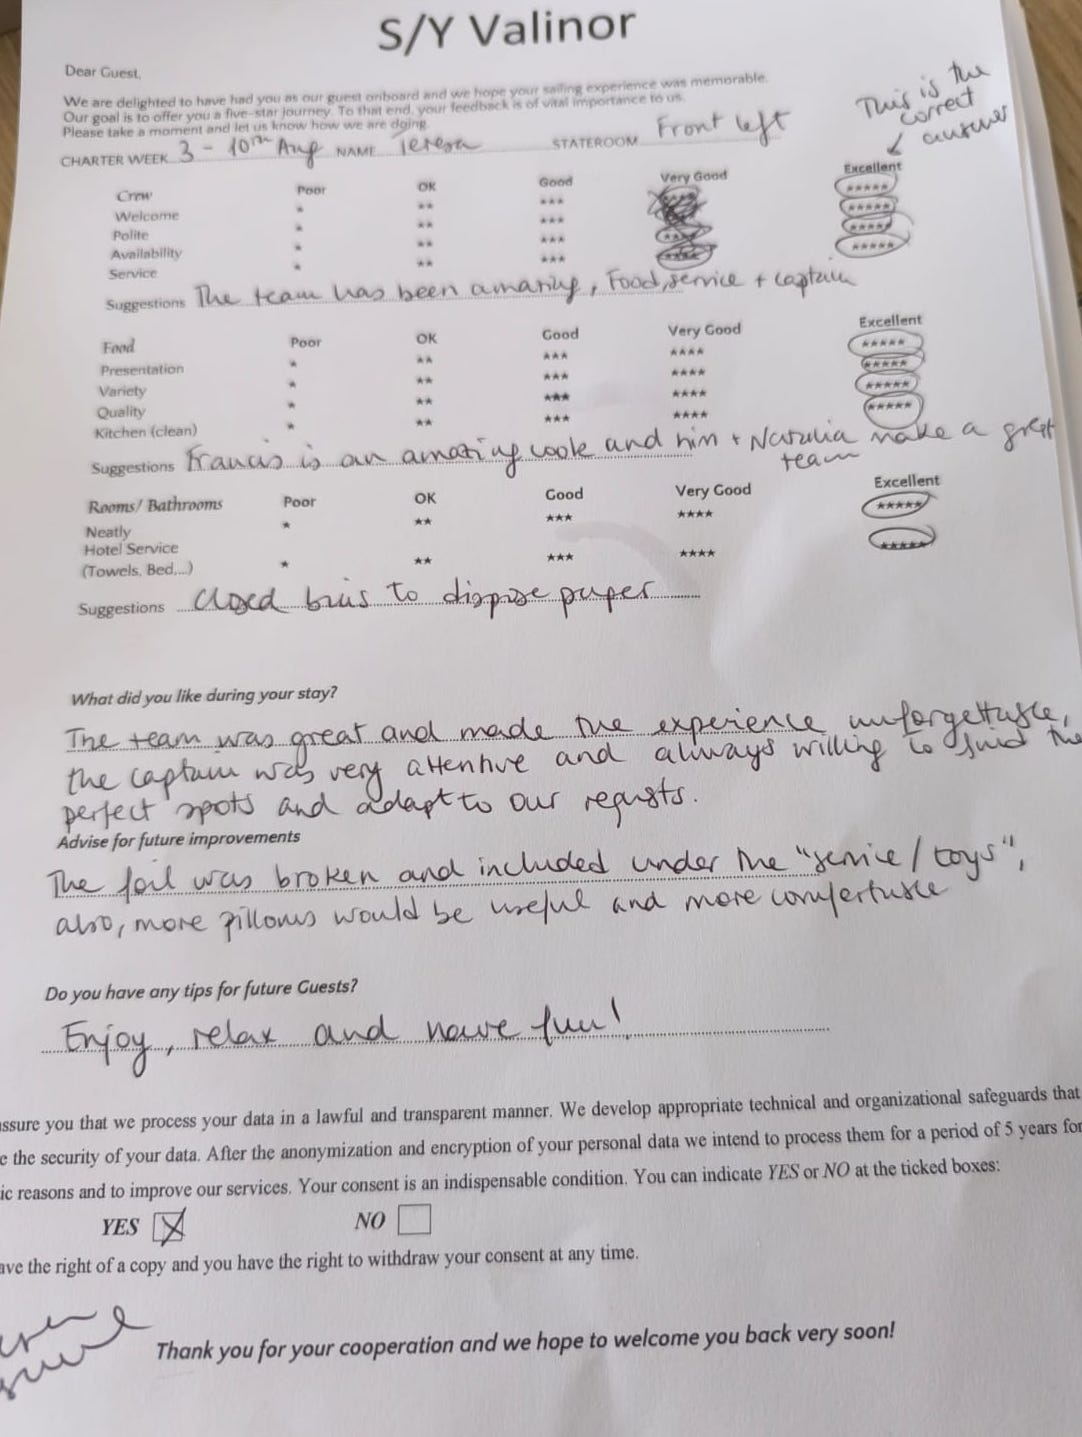 S/Y Valinor
Dear Guest,
We are delighted to have had you as our guest onboard and we hope your sailing experience was memorable.
Our goal is to offer you a five-star journey. To that end, your feedback is of vital importance to us.
Please take a moment and let us know how we are doing.
This is the
correct
answer
CHARTER WEEK 3 - 10th Aug NAME Teresa STATEROOM Front left
Crew Poor OK Good Very Good Excellent
Welcome * ** *** *****
Polite * ** *** *****
Availability * ** *** **** *****
Service * ** *** **** *****
Suggestions The team has been amazing, Food, service + captain
Food Poor OK Good Very Good Excellent
Presentation * ** *** **** *****
Variety * ** *** **** *****
Quality * ** *** **** *****
Kitchen (clean) * ** *** **** *****
Suggestions Francis is an amazing cook and him + Natalia make a great
team
Rooms/ Bathrooms Poor OK Good Very Good Excellent
Neatly * ** *** **** *****
Hotel Service
(Towels, Bed,...) * ** *** **** *****
Suggestions closed bins to dispose paper
What did you like during your stay?
The team was great and made the experience unforgettable,
the captain was very attentive and always willing to find the
perfect spots and adapt to our requsts.
Advise for future improvements
The foil was broken and included under the "service/toys",
also, more pillows would be useful and more comfertable
Do you have any tips for future Guests?
Enjoy, relax and have fun!
assure you that we process your data in a lawful and transparent manner. We develop appropriate technical and organizational safeguards that
e the security of your data. After the anonymization and encryption of your personal data we intend to process them for a period of 5 years for
ic reasons and to improve our services. Your consent is an indispensable condition. You can indicate YES or NO at the ticked boxes:
YES NO
ave the right of a copy and you have the right to withdraw your consent at any time.
Thank you for your cooperation and we hope to welcome you back very soon!